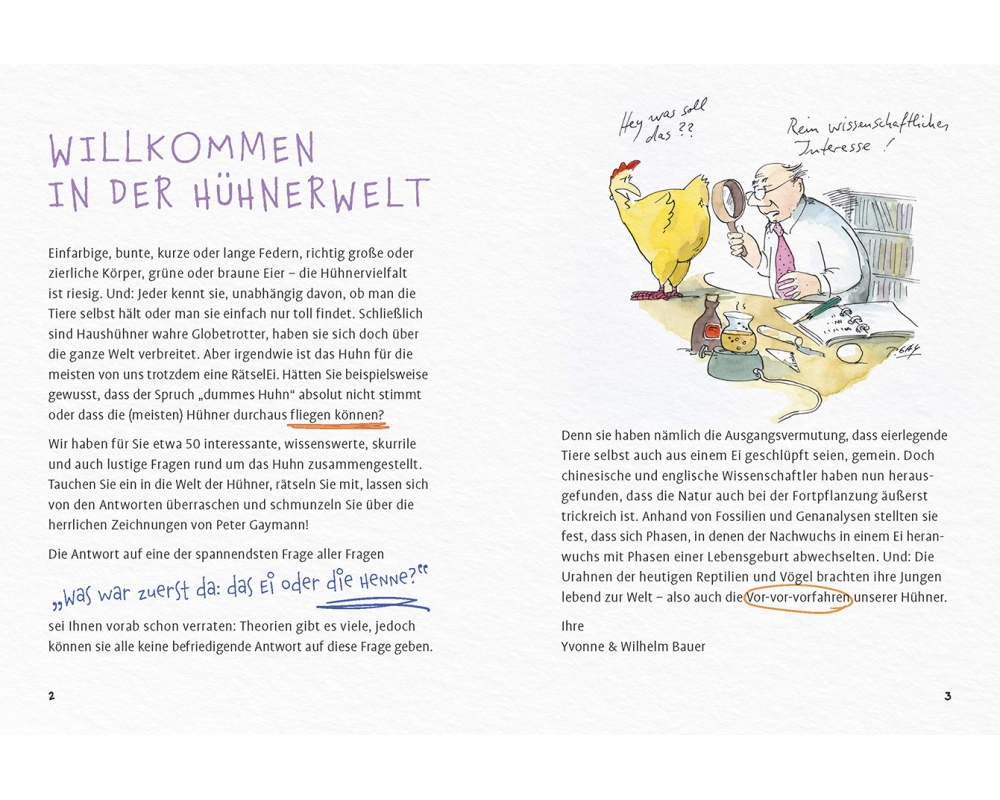 WILLKOMMEN
IN DER HÜHNERWELT
Einfarbige, bunte, kurze oder lange Federn, richtig große oder
zierliche Körper, grüne oder braune Eier – die Hühnervielfalt
ist riesig. Und: Jeder kennt sie, unabhängig davon, ob man die
Tiere selbst hält oder man sie einfach nur toll findet. Schließlich
sind Haushühner wahre Globetrotter, haben sie sich doch über
die ganze Welt verbreitet. Aber irgendwie ist das Huhn für die
meisten von uns trotzdem eine RätselEi. Hätten Sie beispielsweise
gewusst, dass der Spruch „dummes Huhn“ absolut nicht stimmt
oder dass die (meisten) Hühner durchaus fliegen können?
Wir haben für Sie etwa 50 interessante, wissenswerte, skurrile
und auch lustige Fragen rund um das Huhn zusammengestellt.
Tauchen Sie ein in die Welt der Hühner, rätseln Sie mit, lassen sich
von den Antworten überraschen und schmunzeln Sie über die
herrlichen Zeichnungen von Peter Gaymann!
Die Antwort auf eine der spannendsten Frage aller Fragen
„Was war zuerst da: das Ei oder die Henne?“
sei Ihnen vorab schon verraten: Theorien gibt es viele, jedoch
können sie alle keine befriedigende Antwort auf diese Frage geben.
2
Hey was soll
das ??
Rein wissenschaftliches
Interesse !
P. GAY
Denn sie haben nämlich die Ausgangsvermutung, dass eierlegende
Tiere selbst auch aus einem Ei geschlüpft seien, gemein. Doch
chinesische und englische Wissenschaftler haben nun heraus-
gefunden, dass die Natur auch bei der Fortpflanzung äußerst
trickreich ist. Anhand von Fossilien und Genanalysen stellten sie
fest, dass sich Phasen, in denen der Nachwuchs in einem Ei heran-
wuchs mit Phasen einer Lebensgeburt abwechselten. Und: Die
Urahnen der heutigen Reptilien und Vögel brachten ihre Jungen
lebend zur Welt – also auch die Vor-vor-vorfahren unserer Hühner.
Ihre
Yvonne & Wilhelm Bauer
3